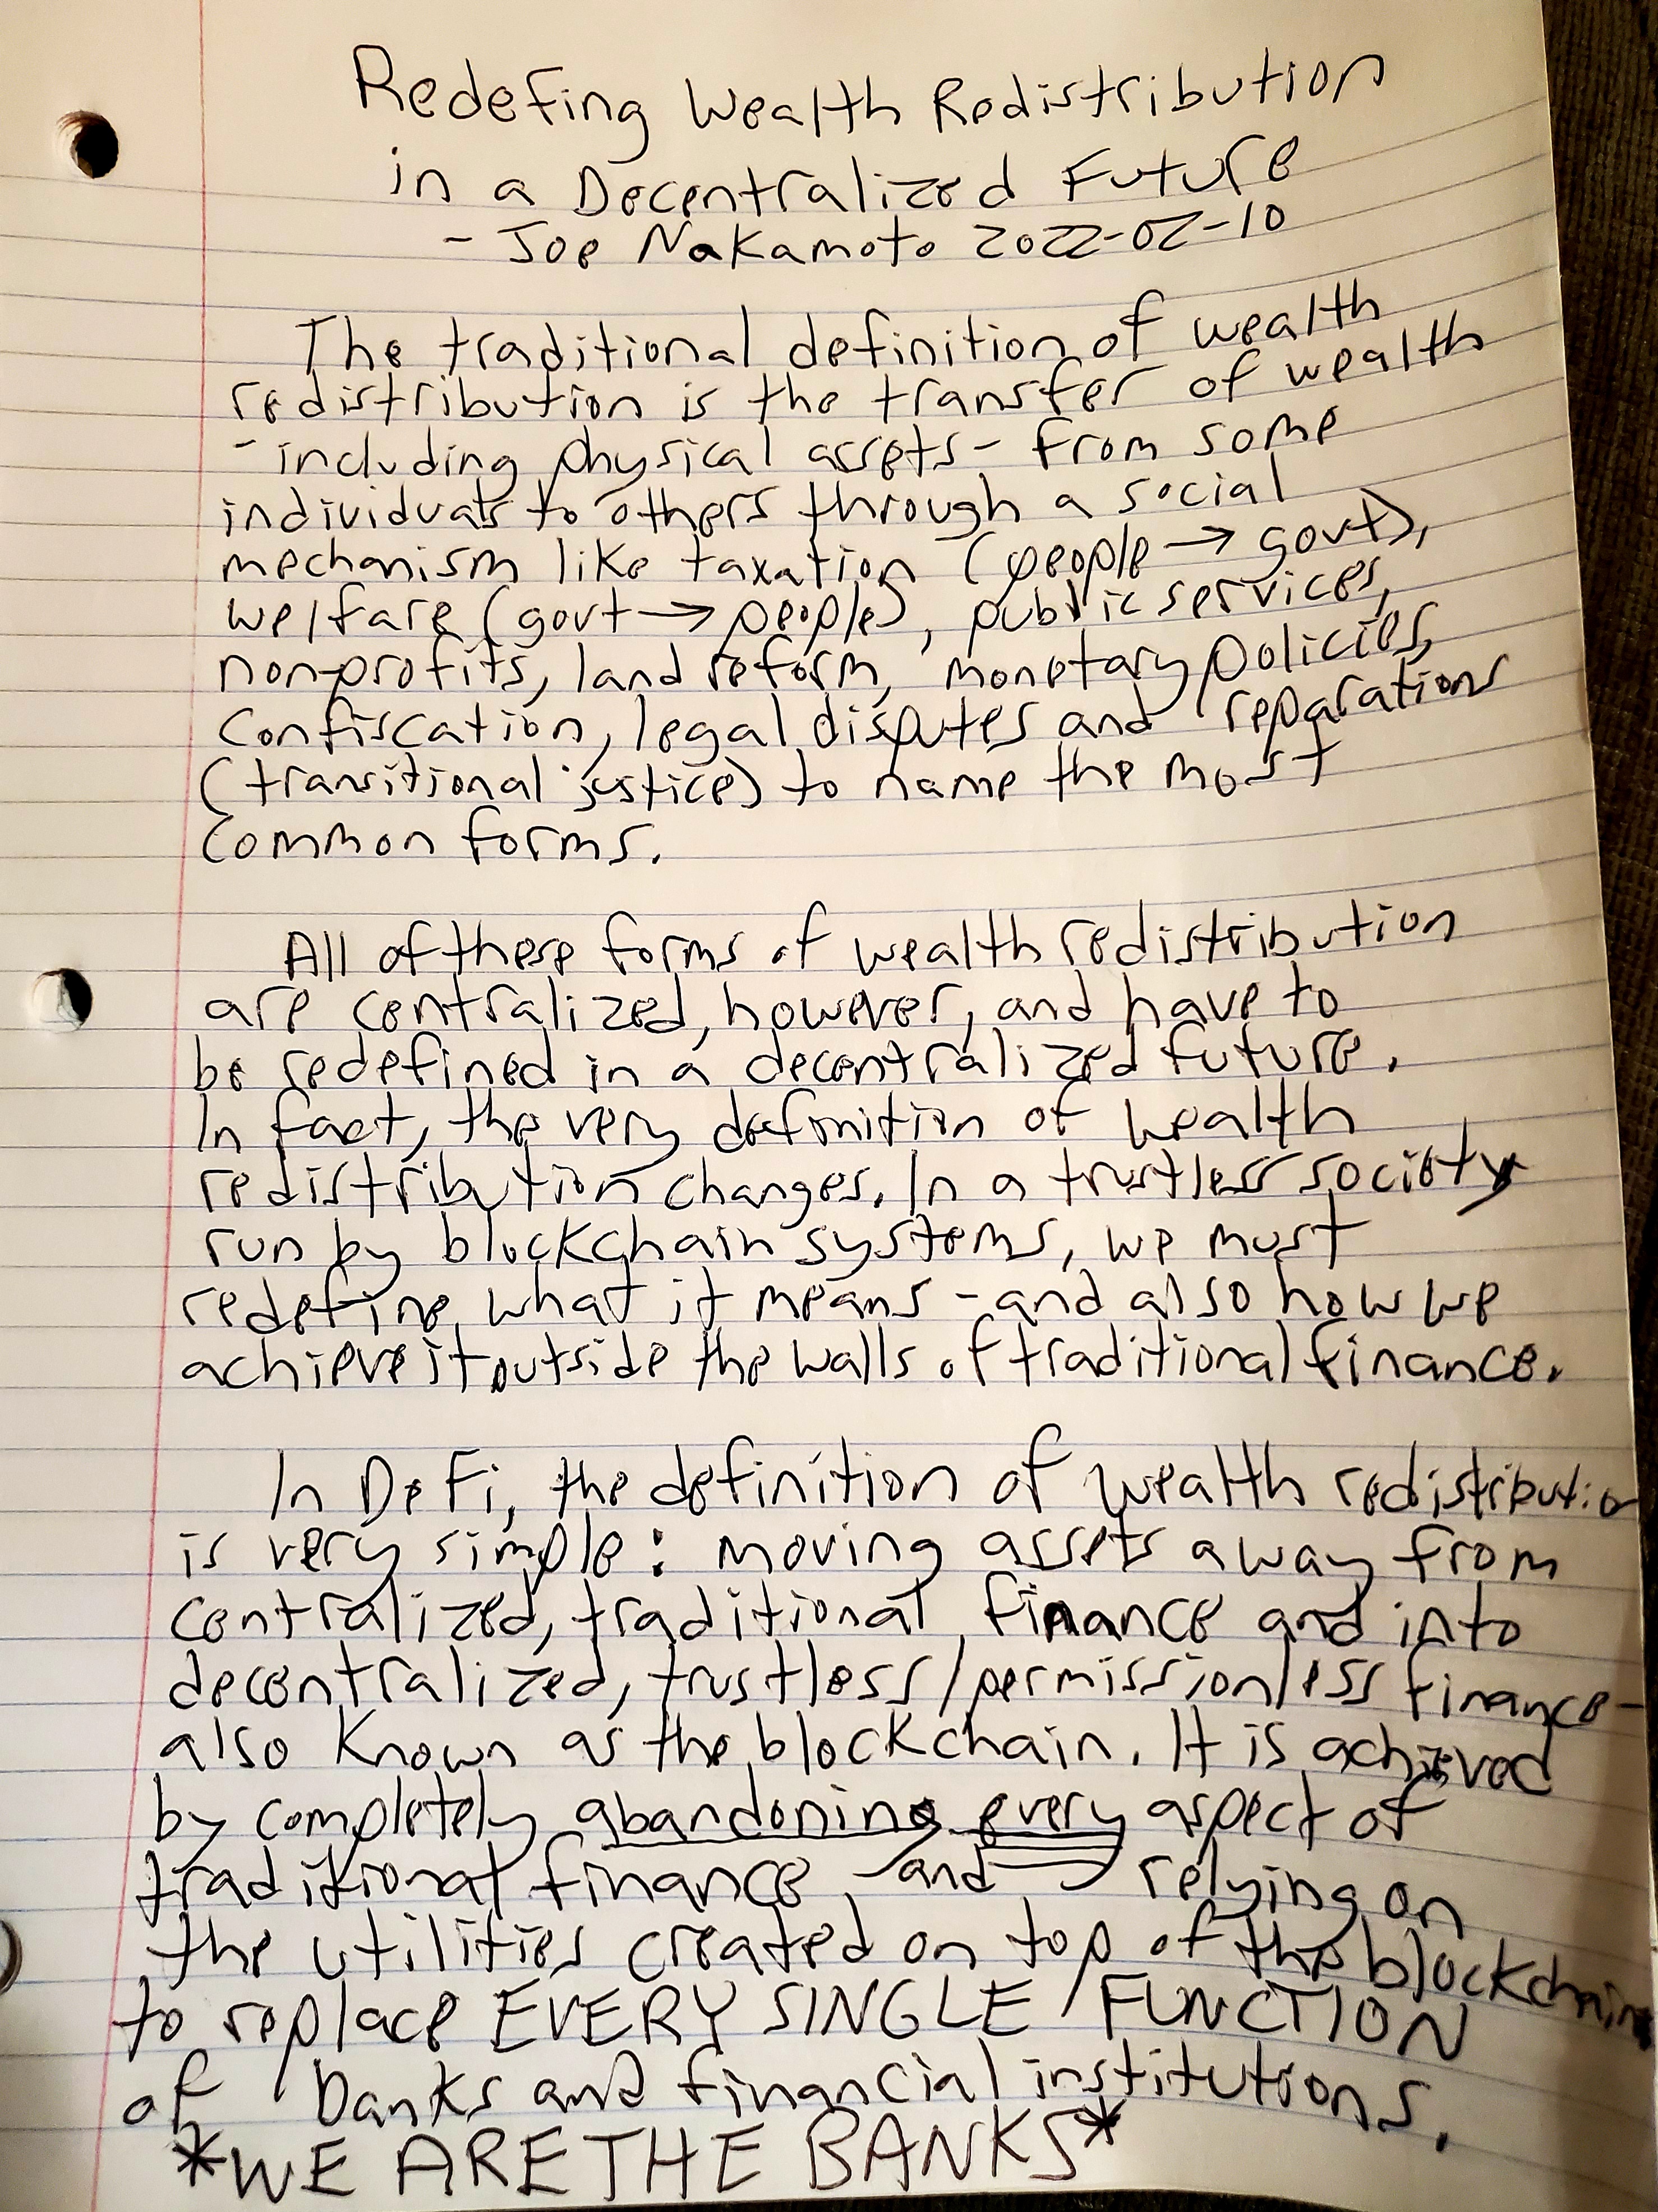 Redefing Wealth Redistribution
in a Decentralized Future
- Joe Nakamoto 2022-02-10
The traditional definition of wealth
redistribution is the transfer of wealth
- including physical assets - from some
individuals to others through a social
mechanism like taxation (people → govt),
welfare (govt → people), public services,
non-profits, land reform, monetary policies,
confiscation, legal disputes and reparations
(transitional justice) to name the most
common forms.
All of these forms of wealth redistribution
are centralized, however, and have to
be redefined in a decentralized future.
In fact, the very definition of wealth
redistribution changes. In a trustless society
run by blockchain systems, we must
redefine what it means - and also how we
achieve it outside the walls of traditional finance.
In DeFi, the definition of wealth redistribution
is very simple: moving assets away from
centralized, traditional finance and into
decentralized, trustless/permissionless finance -
also known as the blockchain. It is achieved
by completely abandoning every aspect of
traditional finance - and - relying on
the utilities created on top of the blockchain
to replace EVERY SINGLE FUNCTION
of banks and financial institutions.
*WE ARE THE BANKS*